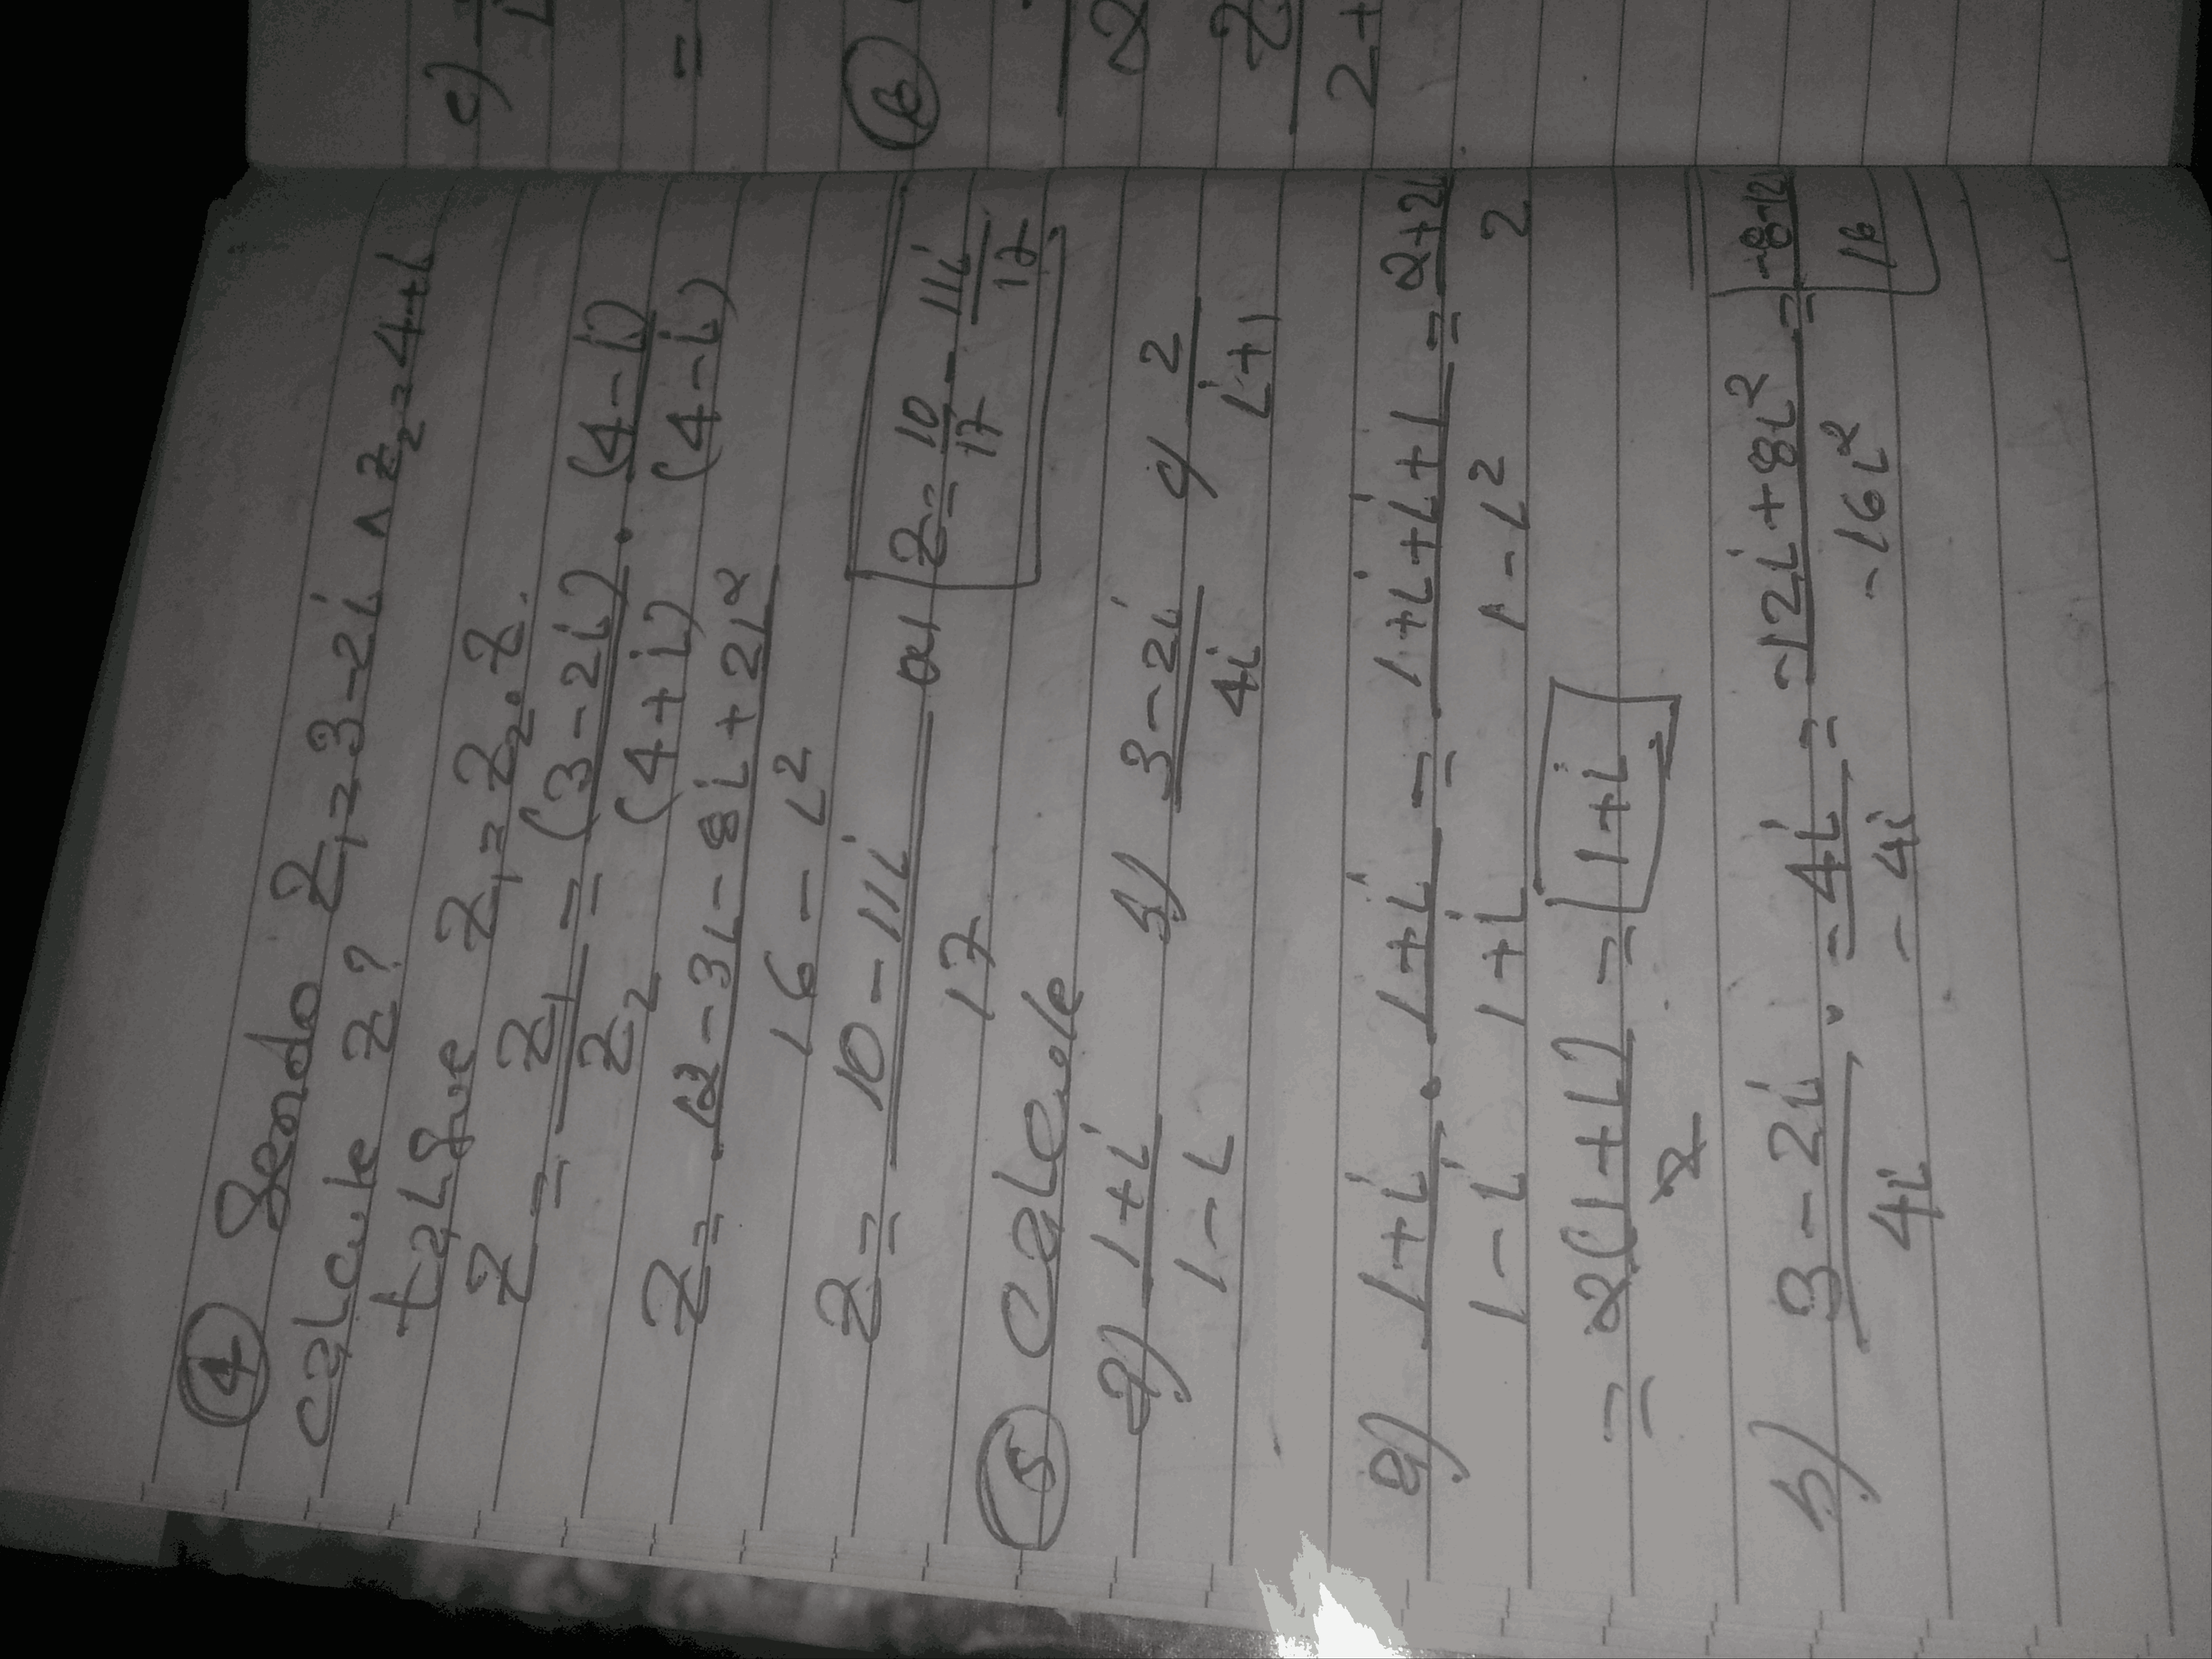 ④ Sendo Z₁=3-2i ∧ Z₂=4+i
calcule Z?
tal que Z₁=Z₂.Z.
Z = Z₁/Z₂ = (3-2i)/(4+i) . (4-i)/(4-i)
Z = (12-3i-8i+2i²)/(16-i²)
Z = (10-11i)/17 ou Z = 10/17 - 11i/17
⑤ Calcule
a) (1+i)/(1-i) b) (3-2i)/4i c) 2/(i+1)
a) (1+i)/(1-i) . (1+i)/(1+i) = (1+i+i+1)/(1-i²) = (2+2i)/2
= 2(1+i)/2 = 1+i
b) (3-2i)/4i . -4i/-4i = (-12i+8i²)/-16i² = (-8-12i)/16
c)
=
⑥
2
2
2+